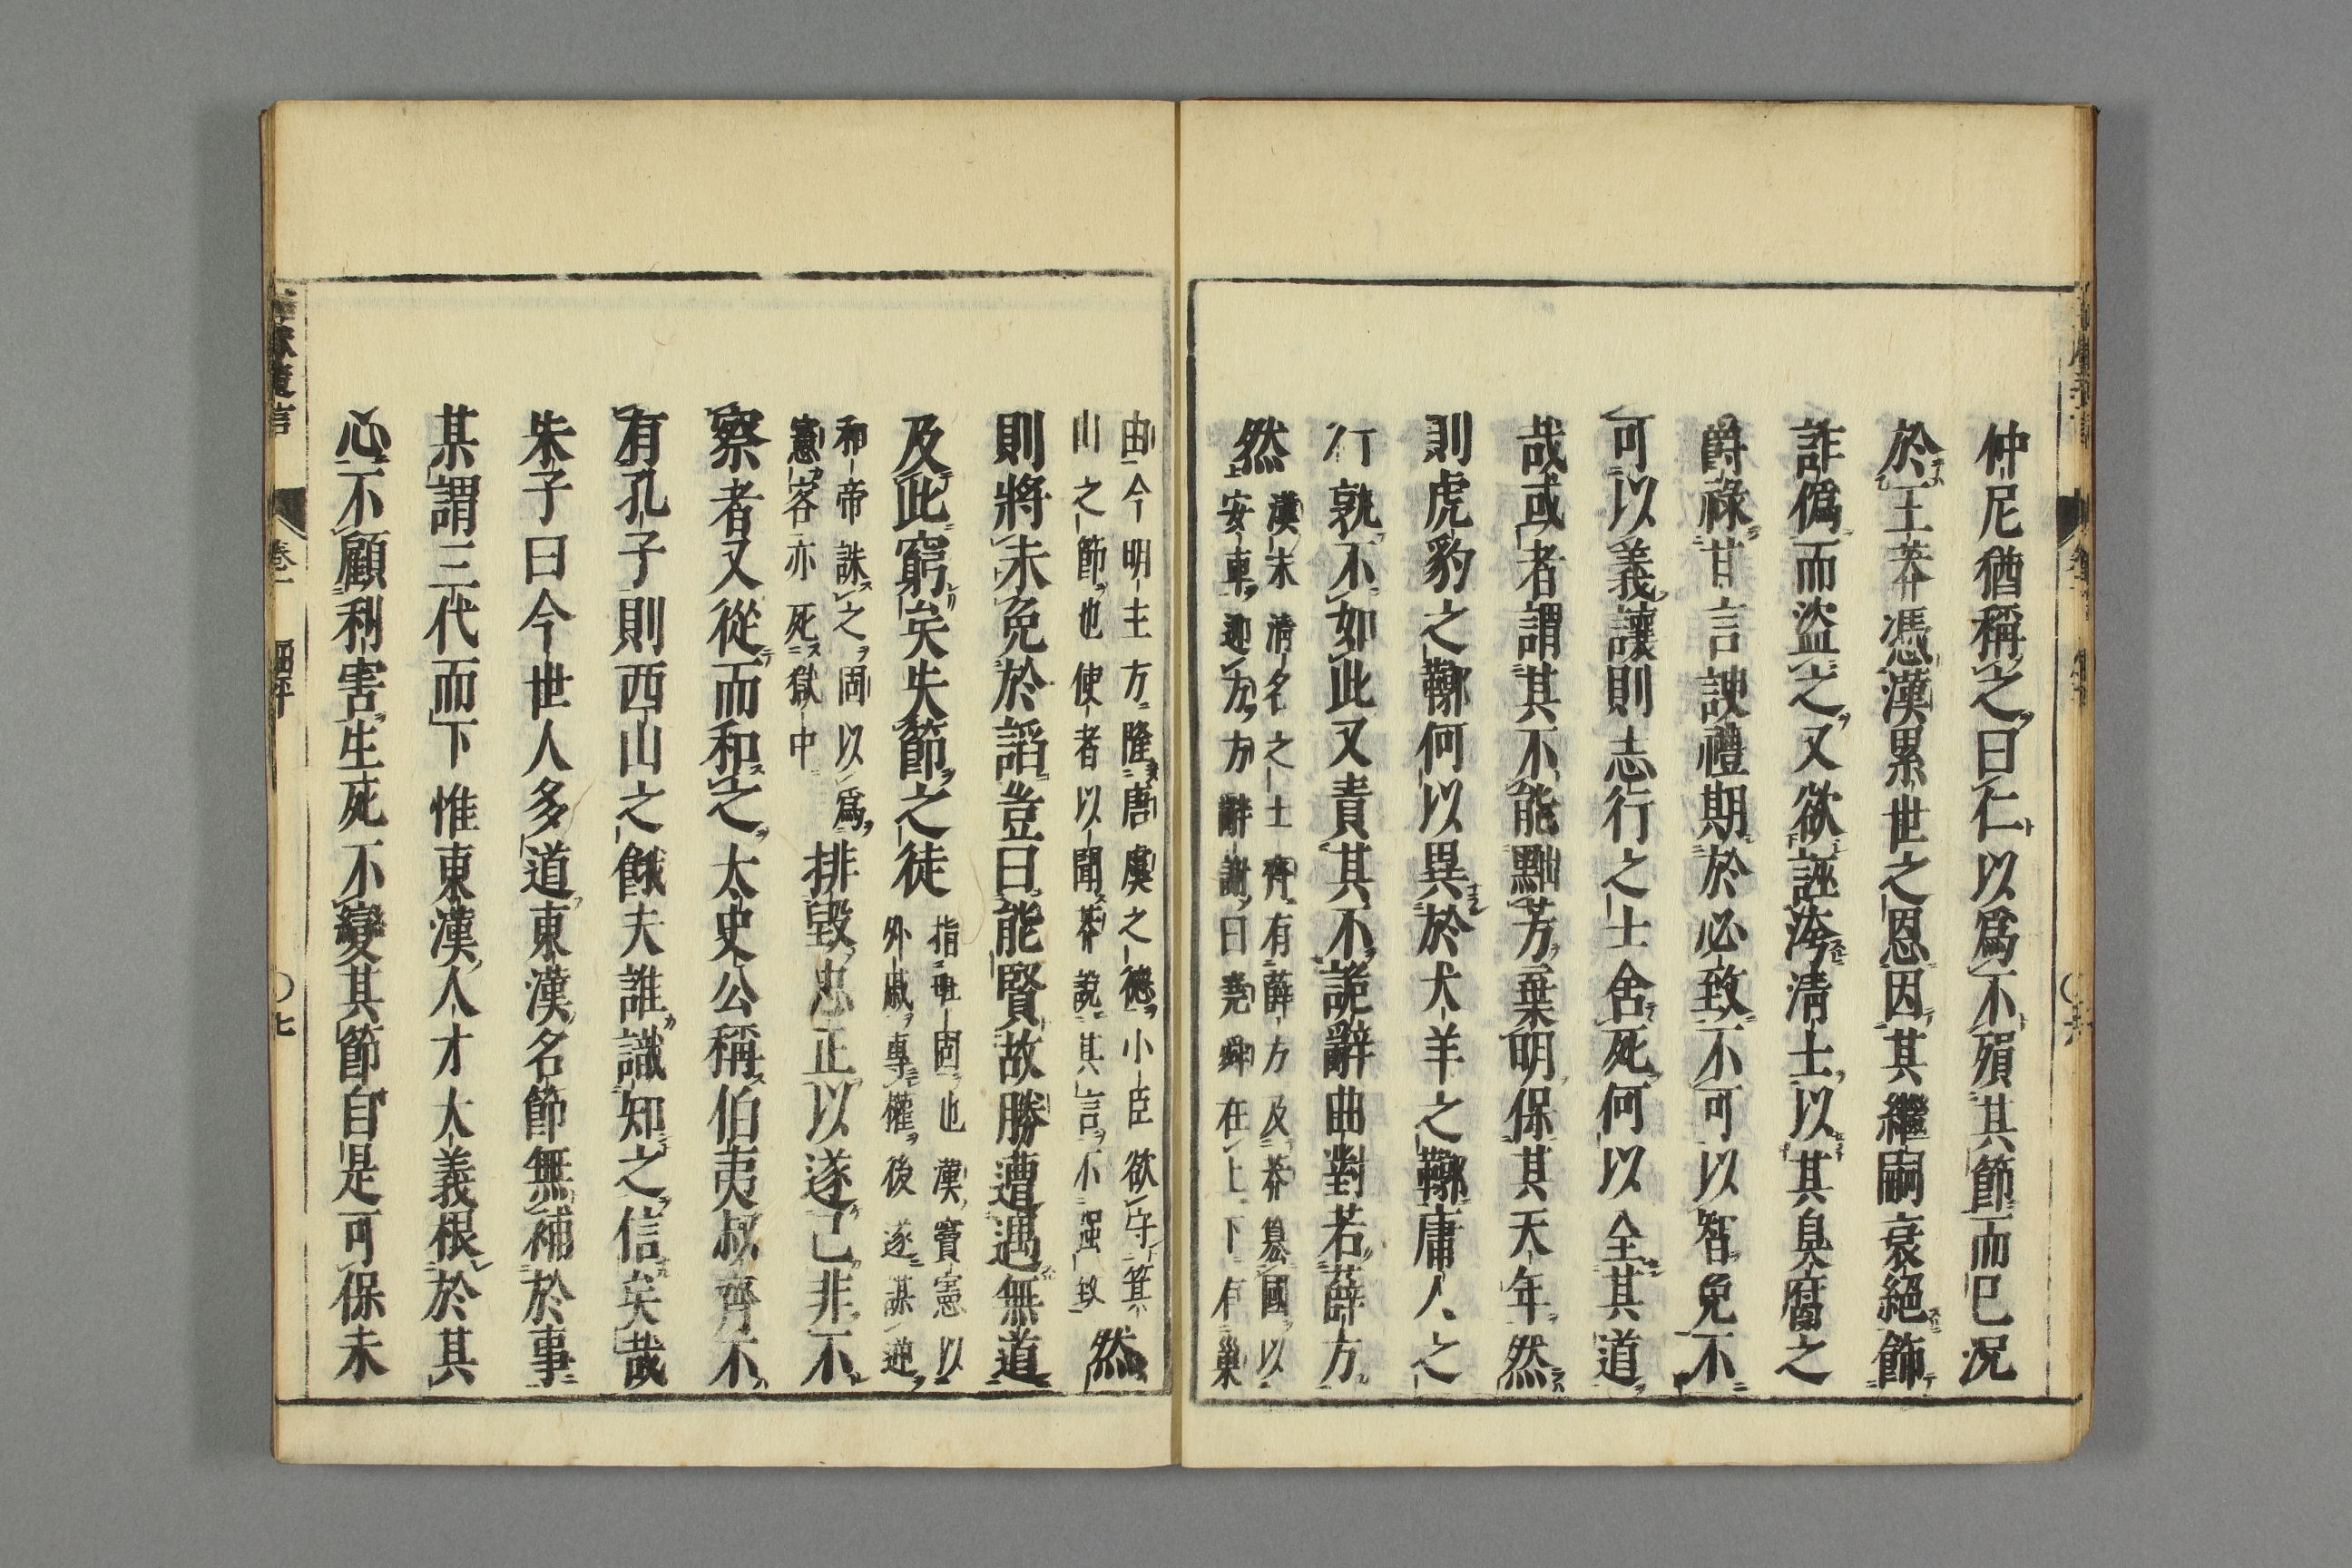 仲尼猶稱之曰仁以爲不殞其節而已況
於王莽憑漢累世之恩因其繼嗣衰絕飾
詐僞而盜之又欲誣洿清士以其臭腐之
爵祿甘言諛禮期於必致不可以智免不
可以義讓則志行之士舍死何以全其道
哉或者謂其不能黜芳棄明保其天年然
則虎豹之鞹何以異於犬羊之鞹庸人之
行孰不如此又責其不詭辭曲對若薛方
然
漢末清名之士齊有薛方及莽簒國以
安車迎方方辭謝曰堯舜在上下有巢
由今明主方隆唐虞之德小臣欲守箕
山之節也使者以聞莽說其言不强致
然
則將未免於諂豈曰能賢故勝遭遇無道
及此窮矣失節之徒
指班固也漢竇憲以
外戚專權後遂謀逆
和帝誅之固以爲
憲客亦死獄中
排毀忠正以遂己非不
察者又從而和之太史公稱伯夷叔齊不
有孔子則西山之餓夫誰識知之信矣哉
朱子曰今世人多道東漢名節無補於事
某謂三代而下惟東漢人才大義根於其
心不顧利害生死不變其節自是可保未
卷一
〇七